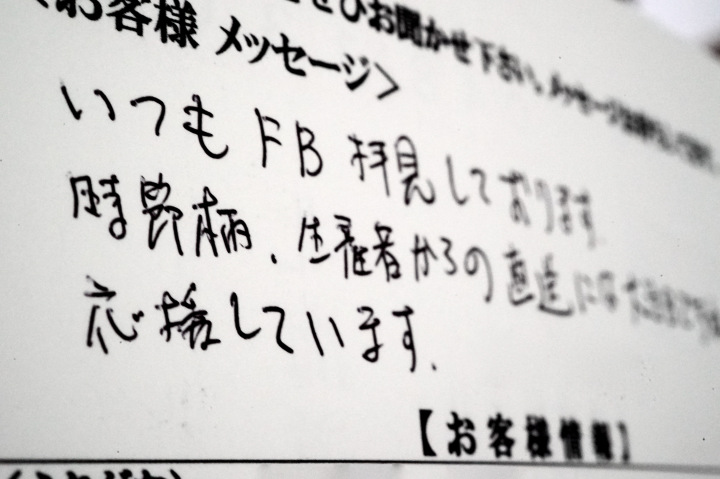 ぜひお聞かせ下さい。メッセージは
お客様 メッセージ>
いつも FB 拝見しております
時節柄、生産者からの直送には
応援しています。
【お客様情報】